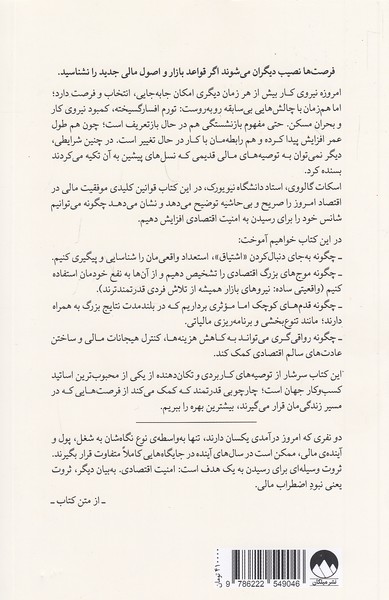 فرصت‌ها نصیب دیگران می‌شوند اگر قواعد بازار و اصول مالی جدید را نشناسید.
امروزه نیروی کار بیش از هر زمان دیگری امکان جابه‌جایی، انتخاب و فرصت دارد؛
اما هم‌زمان با چالش‌هایی بی‌سابقه روبه‌روست: تورم افسارگسیخته، کمبود نیروی کار
و بحران مسکن. حتی مفهوم بازنشستگی هم در حال بازتعریف است؛ چون هم طول
عمر افزایش پیدا کرده و هم رابطه‌مان با کار در حال تغییر است. در چنین شرایطی،
دیگر نمی‌توان به توصیه‌های مالی قدیمی که نسل‌های پیشین به آن تکیه می‌کردند
بسنده کرد.
اسکات گالووی، استاد دانشگاه نیویورک، در این کتاب قوانین کلیدی موفقیت مالی در
اقتصاد امروز را صریح و بی‌حاشیه توضیح می‌دهد و نشان می‌دهد چگونه می‌توانیم
شانس خود را برای رسیدن به امنیت اقتصادی افزایش دهیم.
در این کتاب خواهیم آموخت:
ـ چگونه به‌جای دنبال‌کردن «اشتیاق»، استعداد واقعی‌مان را شناسایی و پیگیری کنیم.
ـ چگونه موج‌های بزرگ اقتصادی را تشخیص دهیم و از آن‌ها به نفع خودمان استفاده
کنیم (واقعیتی ساده: نیروهای بازار همیشه از تلاش فردی قدرتمندترند).
ـ چگونه قدم‌های کوچک اما مؤثری برداریم که در بلندمدت نتایج بزرگ به همراه
دارند؛ مانند تنوع‌بخشی و برنامه‌ریزی مالیاتی.
ـ چگونه رواقی‌گری می‌تواند به کاهش هزینه‌ها، کنترل هیجانات مالی و ساختن
عادت‌های سالم اقتصادی کمک کند.
این کتاب سرشار از توصیه‌های کاربردی و تکان‌دهنده از یکی از محبوب‌ترین اساتید
کسب‌وکار جهان است؛ چارچوبی قدرتمند که کمک می‌کند از فرصت‌هایی که در
مسیر زندگی‌مان قرار می‌گیرند، بیشترین بهره را ببریم.
دو نفری که امروز درآمدی یکسان دارند، تنها به‌واسطه‌ی نوع نگاه‌شان به شغل، پول و
آینده‌ی مالی، ممکن است در سال‌های آینده در جایگاه‌هایی کاملاً متفاوت قرار بگیرند.
ثروت وسیله‌ای برای رسیدن به یک هدف است: امنیت اقتصادی. به‌بیان دیگر، ثروت
یعنی نبودِ اضطراب مالی.
ـ از متن کتاب ـ
۴۱۰۰۰۰ تومان
9 786222 549046
نشر میلکان